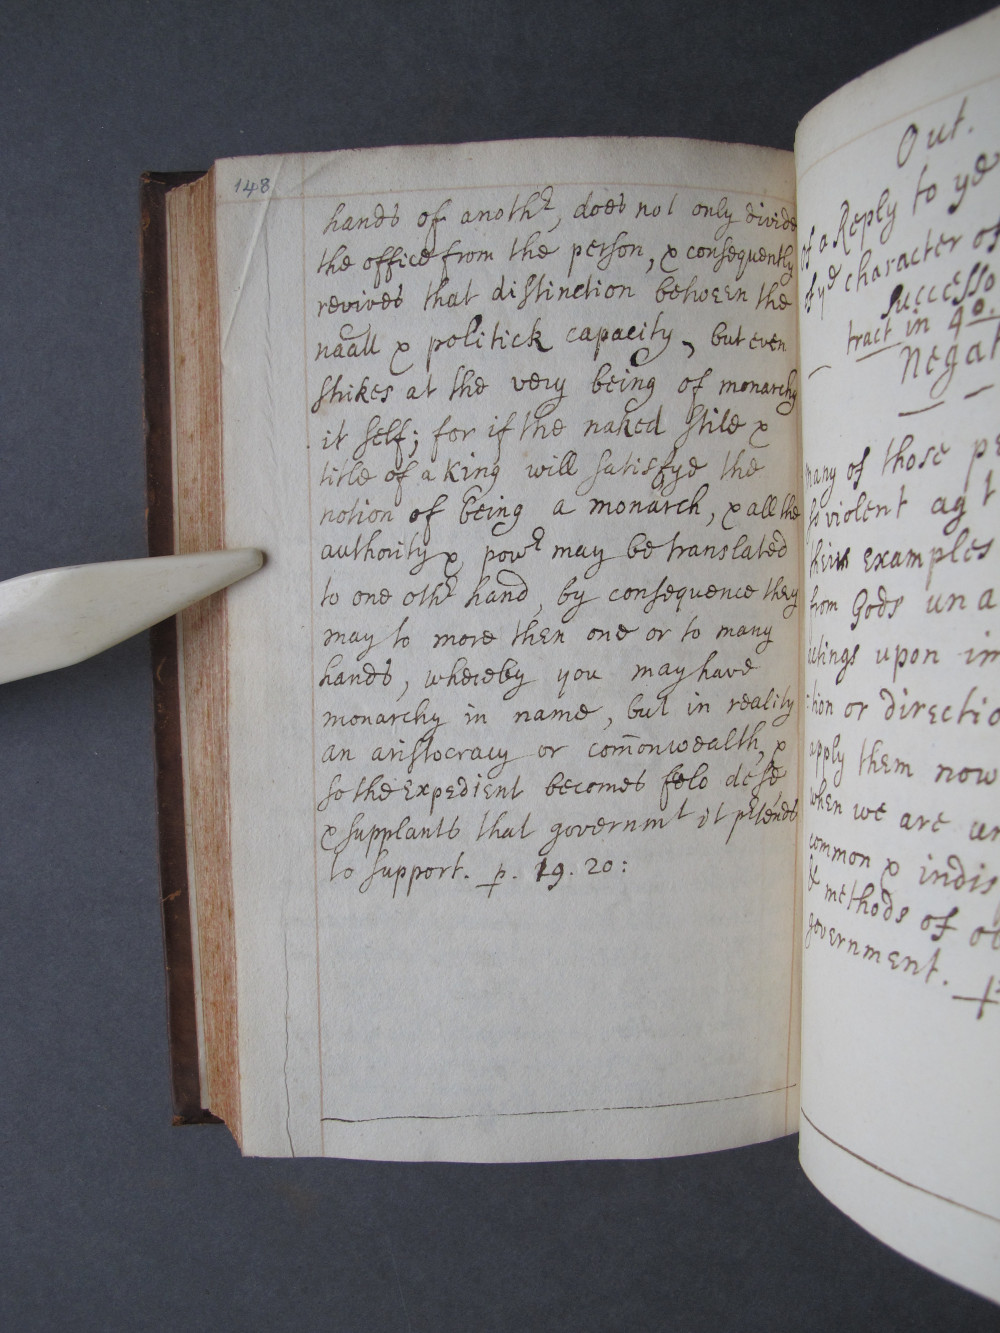 148
hands of anothr, does not only divide
the office from the person, & consequently
revives that distinction between the
naall & politick capacity, but even
strikes at the very being of monarchy
it self; for if the naked stile &
title of a King will satisfye the
notion of being a monarch, & all the
authority & powr may be translated
to one othr hand, by consequence they
may to more then one or to many
hands, whereby you may have
monarchy in name, but in reality
an aristocracy or com̄onwealth, &
so the expedient becomes felo de se
& supplants that governmt it pretends
to support. p. 19. 20:
Out.
of a Reply to ye
of ye character of
successo
tract in 4o.
Negat
many of those
so violent agt
their examples
from Gods una
upon im
or directio
apply them now
when we are un
common & indis
& methods of ou
government.